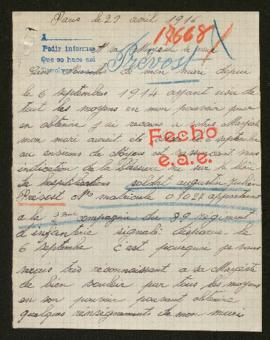 Paris le 27 avril 1916
18668
A
Pedir informes
Que se hace así
Prevost
de mon mari depuis
le 6 septembre 1914 ayant usé de
tout les moyens en mon pouvoir pour
en obtenir j'ai recours a votre Majesté
mon mari aurait été 6 septembre
aux environs de
indication de la blessure ni sur le lieu
Fecho
e.a.e.
soldat augustin Julien
Prevost No matricule 01027 appartenant
a la compagnie du 39 régiment
d'infanterie signalé disparu le
6 septembre c'est pourquoi je vous
serais très reconnaissant a sa Majesté
de bien vouloir par tous les moyens
en son pouvoir pouvant obtenir
quelques renseignements de mon mari